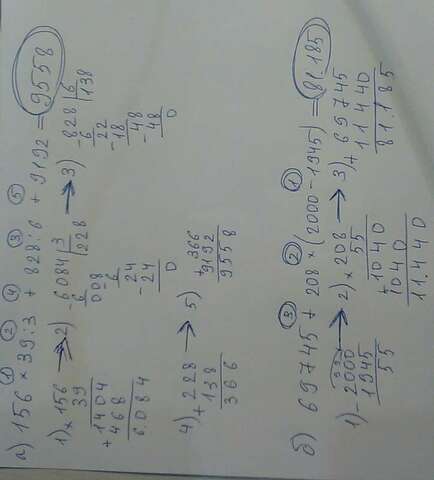 ① ② ④ ③ ⑤
а) 156 × 39 : 3 + 828 : 6 + 9192 = 9558
1) × 156
39
+ 1404
468
6.084
2) - 6084 | 3
6 | 228
008
- 6
24
- 24
0
3) - 828 | 6
6 | 138
22
- 18
48
- 48
0
4) + 228
138
366
5) + 366
9192
9558
③ ② ①
б) 69745 + 208 × (2000 - 1945) = 81.185
1) - 2000
1945
55
2) × 208
55
+ 1040
1040
11.440
3) + 69745
11440
81.185